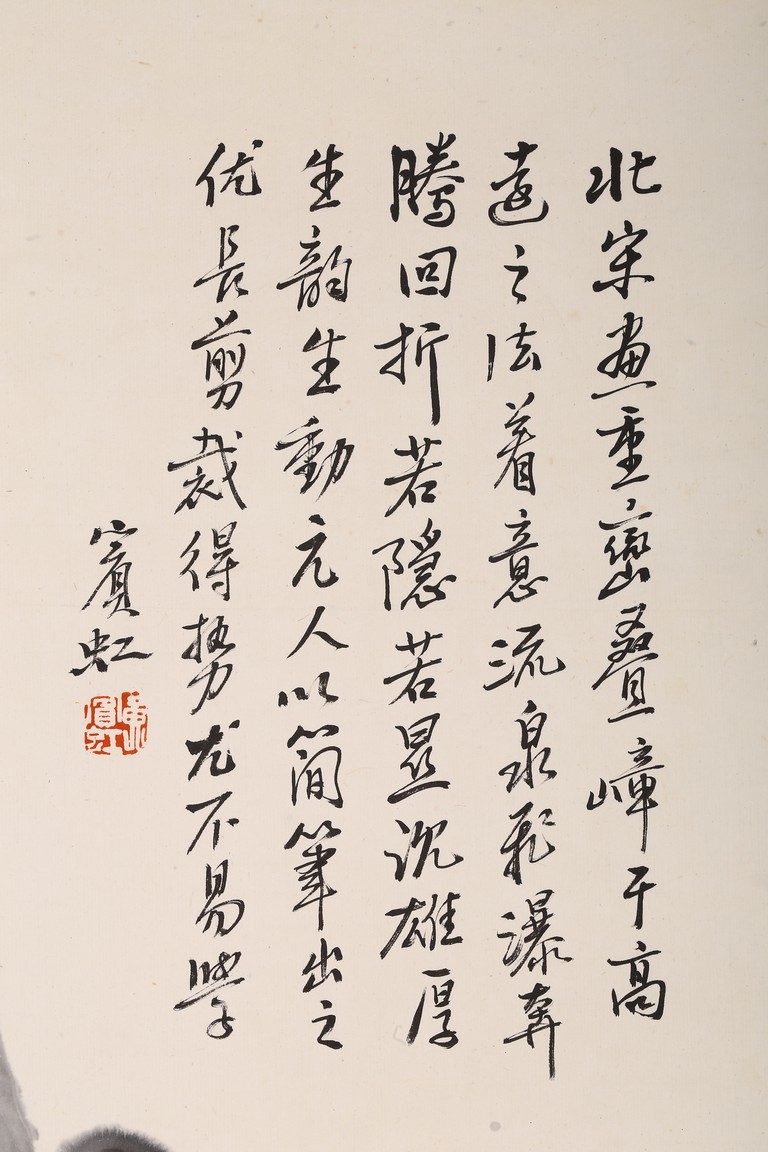 北宋画重峦叠嶂于高
远之法着意流泉飛瀑奔
腾回折若隐若显沉雄厚
生韵生動元人以简筆出之
优長剪裁得势尤不易学
賓虹